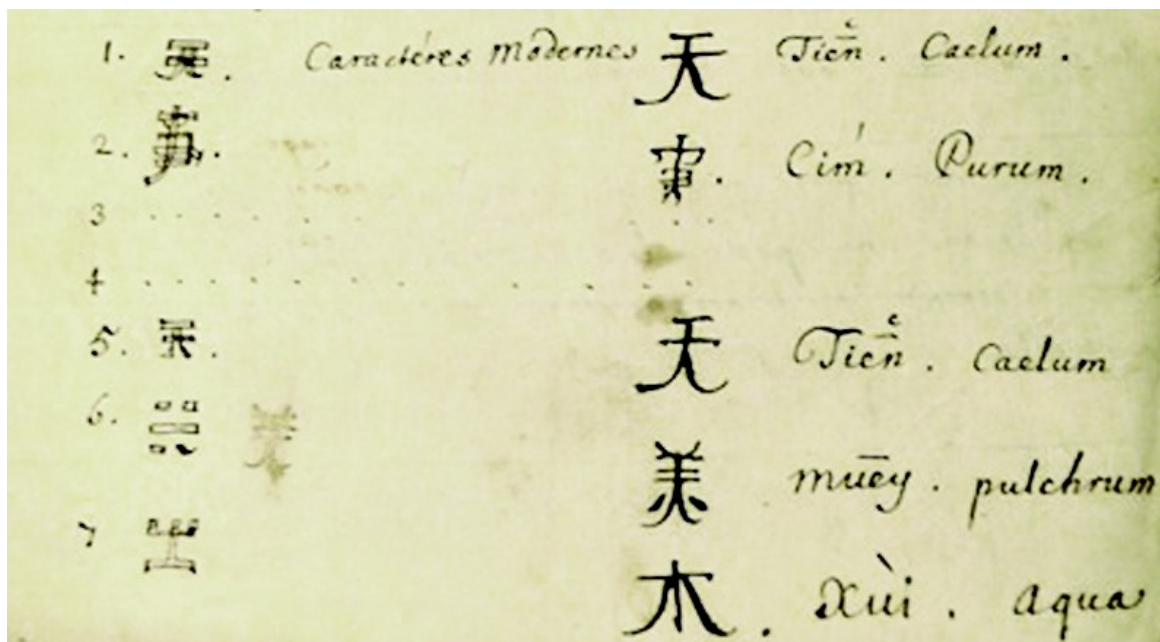 1. Caractéres Modernes 天 Tien̄. Caelum.
2. Cim̀. Purum.
3 . . . . . . . . .
4 . . . . . . . . . . .
5. 天 Tien̄. Caelum
6. 美 mūey. pulchrum
7 木. Xùi. aqua